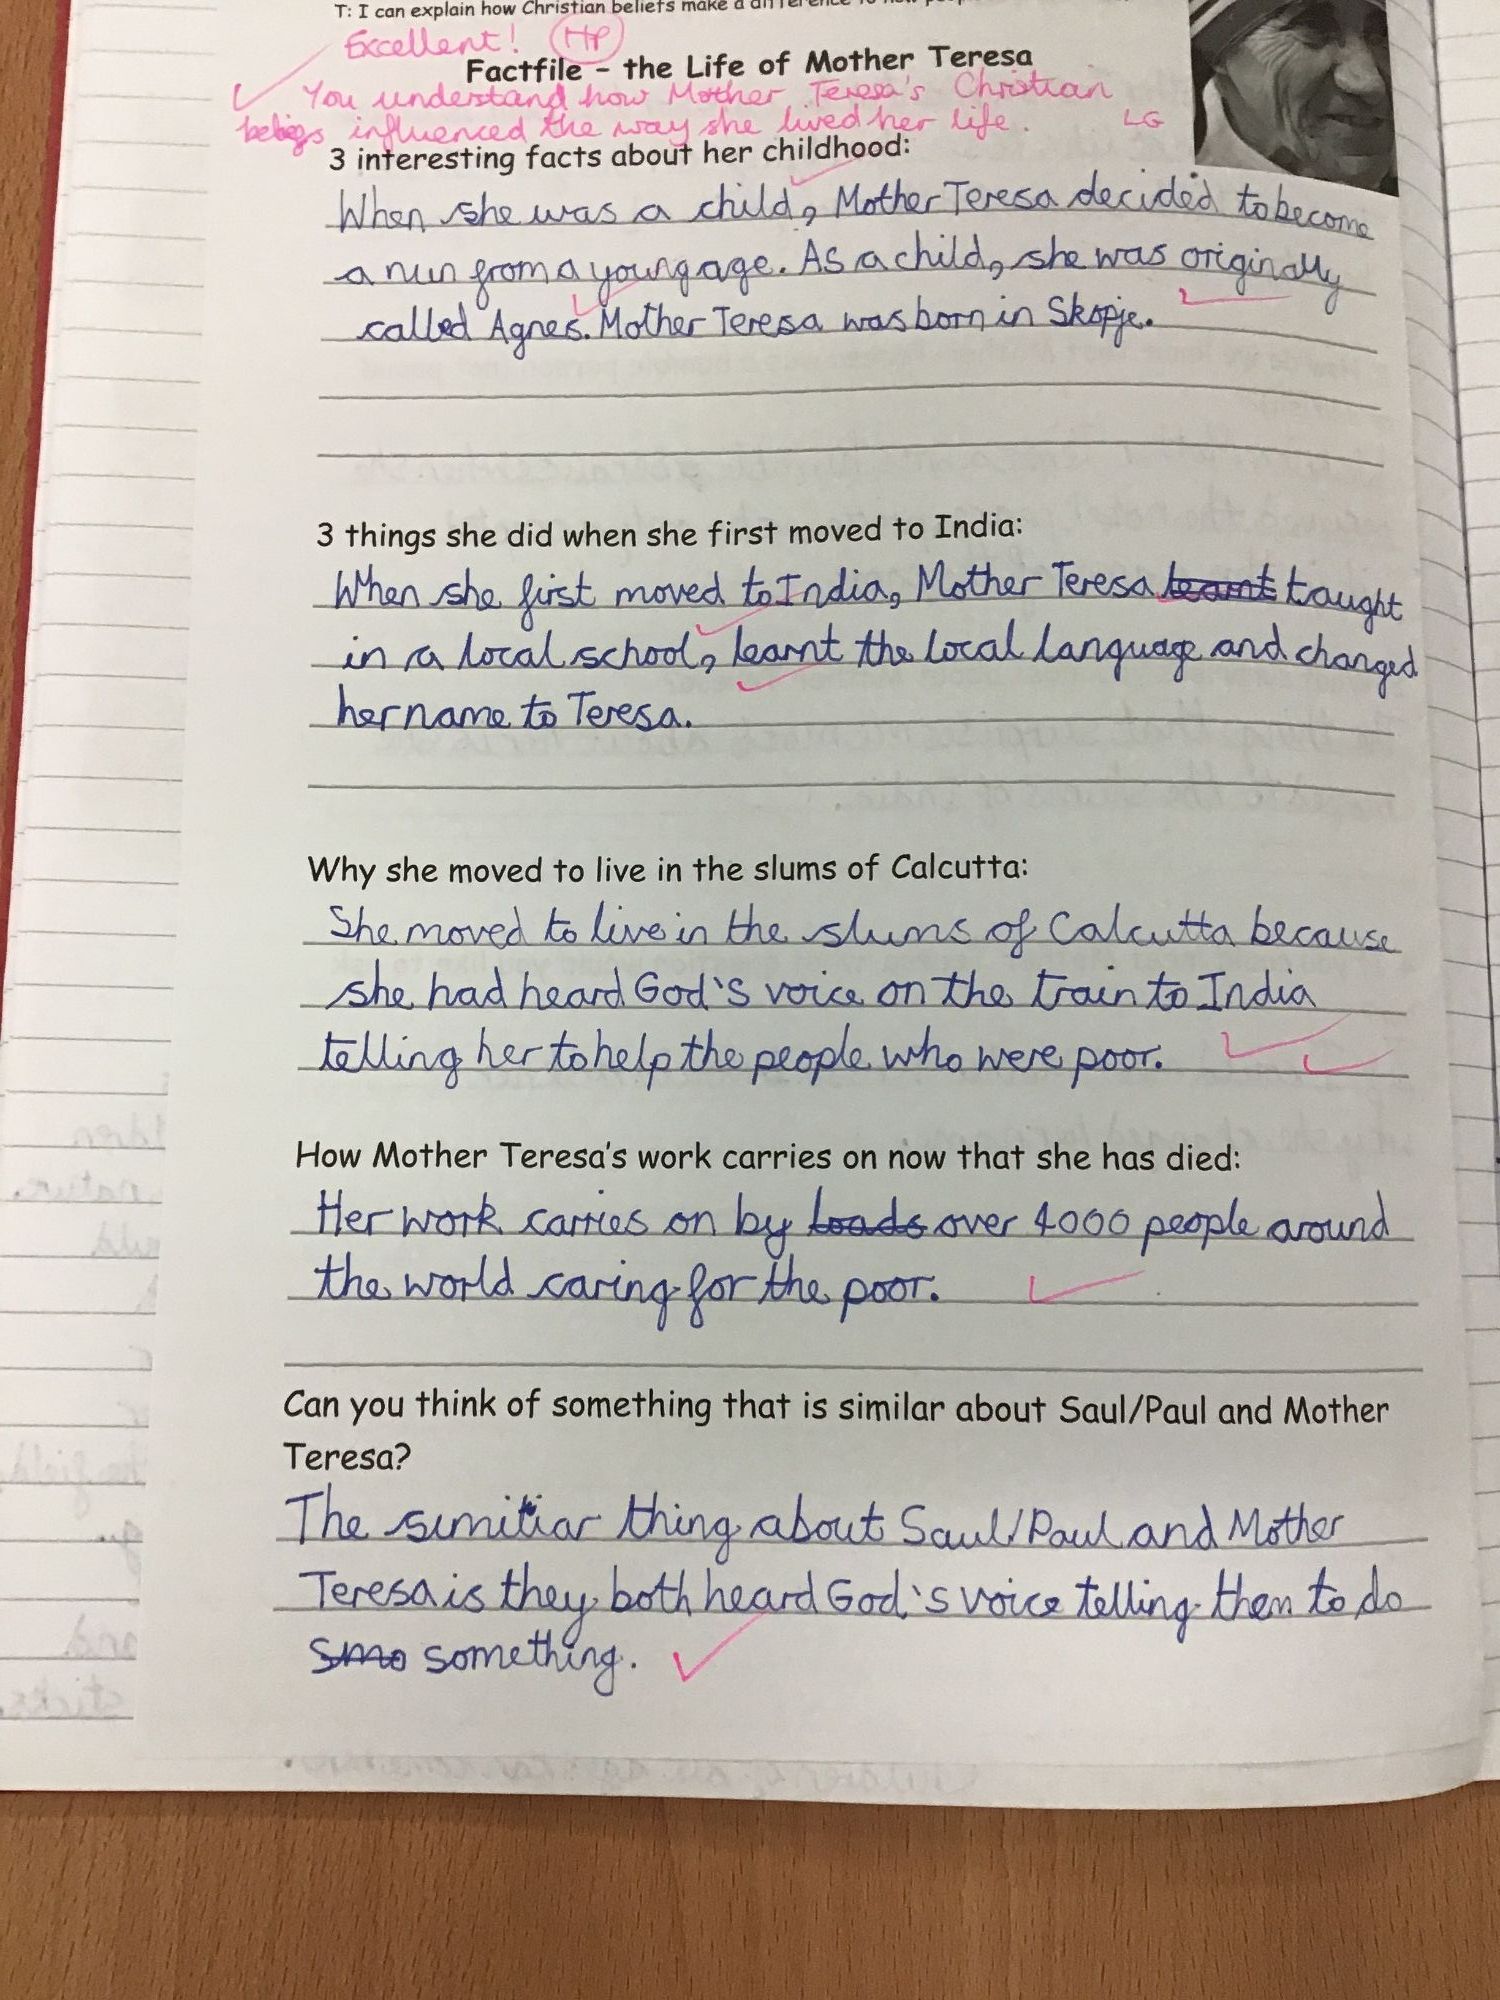 T: I can explain how Christian beliefs make a difference to how
Excellent! HP
Factfile - the Life of Mother Teresa
You understand how Mother Teresa's Christian
beliefs influenced the way she lived her life. LG
3 interesting facts about her childhood:
When she was a child, Mother Teresa decided to become
a nun from a young age. As a child, she was originally
called Agnes. Mother Teresa was born in Skopje.
3 things she did when she first moved to India:
When she first moved to India, Mother Teresa learnt taught
in a local school, learnt the local language and changed
her name to Teresa.
Why she moved to live in the slums of Calcutta:
She moved to live in the slums of Calcutta because
she had heard God's voice on the train to India
telling her to help the people who were poor.
How Mother Teresa's work carries on now that she has died:
Her work carries on by loads over 4000 people around
the world caring for the poor.
Can you think of something that is similar about Saul/Paul and Mother
Teresa?
The similiar thing about Saul/Paul and Mother
Teresa is they both heard God's voice telling them to do
smo something.